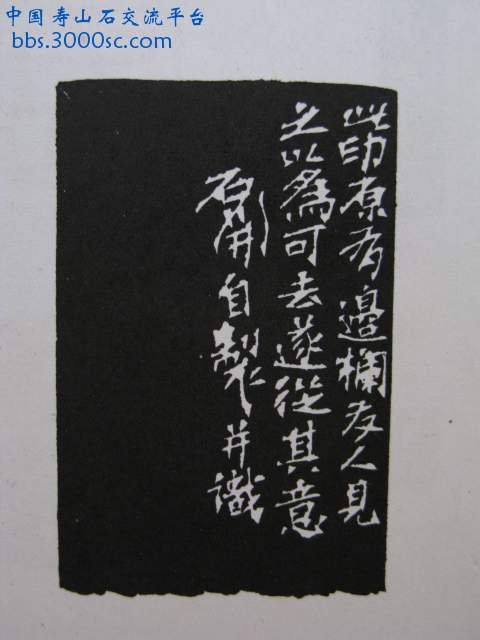 中国寿山石交流平台
bbs.3000sc.com
此印原有邉欄友人見
之以為可去遂從其意
石開自製并識